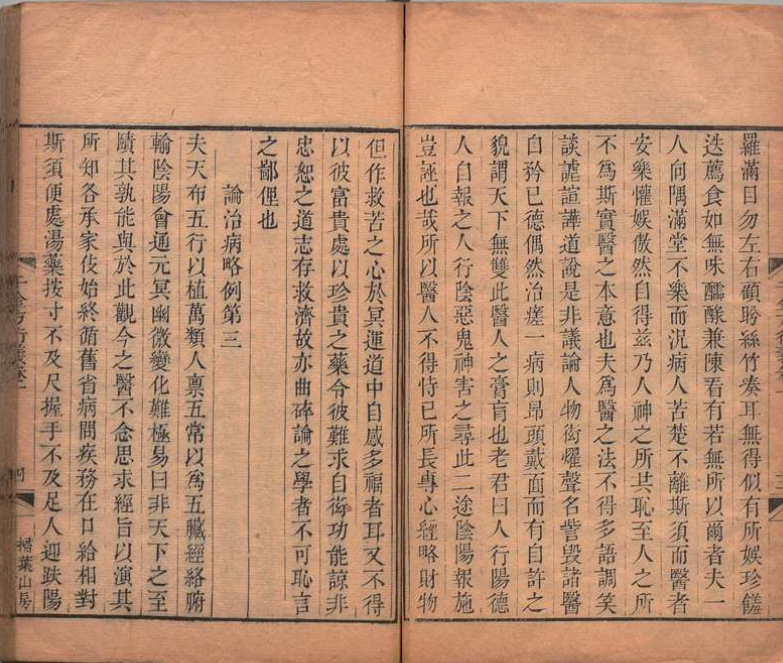 羅滿目勿左右顧眄絲竹奏耳無得似有所娛珍饈
迭薦食如無味醽醁兼陳看有若無所以爾者夫一
人向隅滿堂不樂而況病人苦楚不離斯須而醫者
安樂懽娛傲然自得茲乃人神之所共恥至人之所
不為斯實醫之本意也夫為醫之法不得多語調笑
談謔諠譁道說是非議論人物衒耀聲名訾毀諸醫
自矜已德偶然治瘥一病則昂頭戴面而有自許之
貌謂天下無雙此醫人之膏肓也老君曰人行陽德
人自報之人行陰惡鬼神害之尋此二途陰陽報施
豈誣也哉所以醫人不得恃已所長專心經略財物
但作救苦之心於冥運道中自感多福者耳又不得
以彼富貴處以珍貴之藥令彼難求自衒功能諒非
忠恕之道志存救濟故亦曲碎論之學者不可恥言
之鄙俚也
論治病略例第三
夫天布五行以植萬類人禀五常以為五臟經絡腑
輸陰陽會通元冥幽微變化難極易曰非天下之至
賾其孰能與於此觀今之醫不念思求經旨以演其
所知各承家伎始終循舊省病問疾務在口給相對
斯須便處湯藥按寸不及尺握手不及足人迎趺陽
千金方衍義卷一
四
掃葉山房